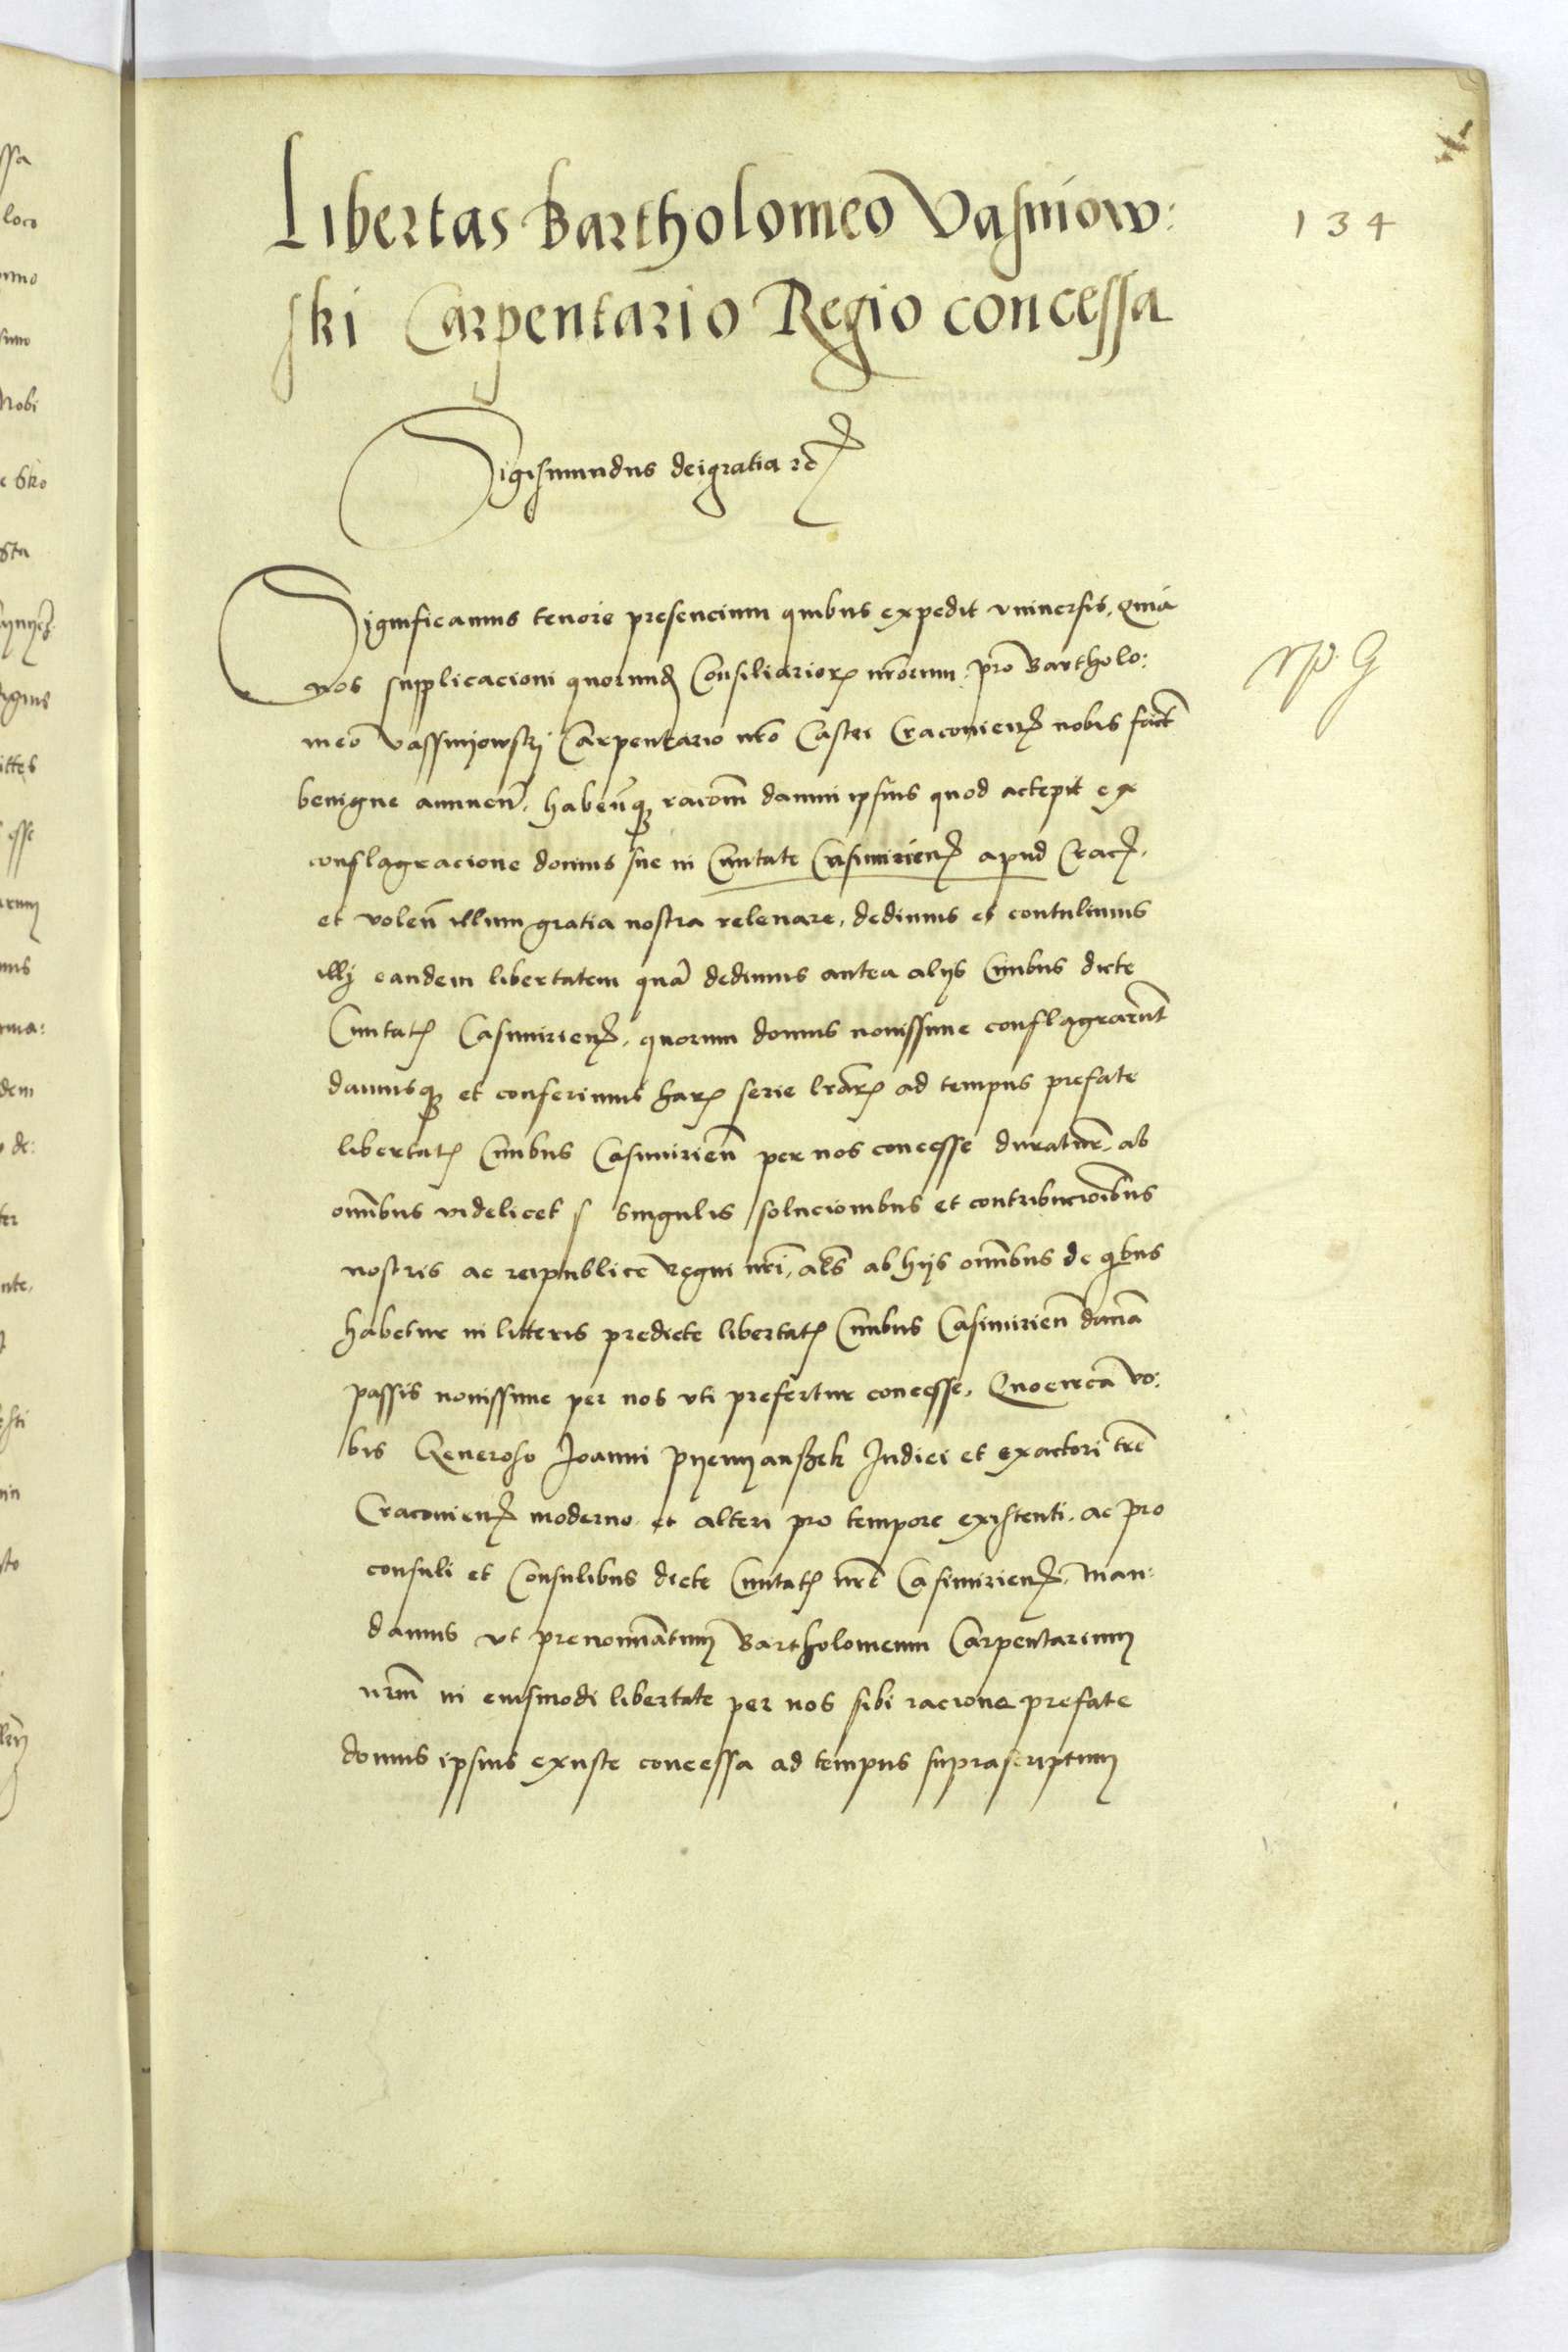 Libertas Bartholomeo Vasniow:
ski Carpentario Regio concessa
134
Sigismundus dei gratia rc̃
Significamus tenore presencium quibus expedit vniuersis, Quia
nos supplicacioni quorundꝫ Consiliarioꝝ nr̃orum pro Bartholo:
meo Vassnyowskj Carpentario nr̃o Castri Cracovienꝭ nobis fact̃
benigne annuen̄. habeñqꝫ rac̃oem̃ damni ipsius quod accepit ex
conflagracione domus sue in Ciuitate Casimirienꝭ apud Cracꝭ.
et volen̄ illum gratia nostra releuare, dedimus et contulimus
illj eandem libertatem quã dedimus antea alijs Ciuibus dicte
Ciuitatꝭ Casimirienꝭ, quorum domus nouissime conflagrarũt
damusqꝫ et conferimus haꝝ serie lr̃aꝝ ad tempus prefate
libertatꝭ Ciuibus Casimirien̄ per nos concesse duratur̃, ab
omĩbus videlicet singulis solucionibus et contribucioĩbus
nostris ac reipublice Regni nr̃i, al̃s ab hijs omĩbus de qͥbus
habetur in litteris predicte libertatꝭ Ciuibus Casimirien̄ damã
passis nouissime per nos vti prefertur concesse, Quocircã vo:
bis Generoso Joanni Pyenyanszek Judici et exactori tr̃e
Cracovienꝭ moderno et alteri pro tempore existenti. ac pro
consuli et Consulibus dicte Ciuitatꝭ nr̃e Casimirienꝭ. Man:
damus vt prenomĩatum Bartholomeum Carpentarium
nr̃m in eiusmodi libertate per nos sibi racione prefate
domus ipsius exuste concessa ad tempus suprascriptum